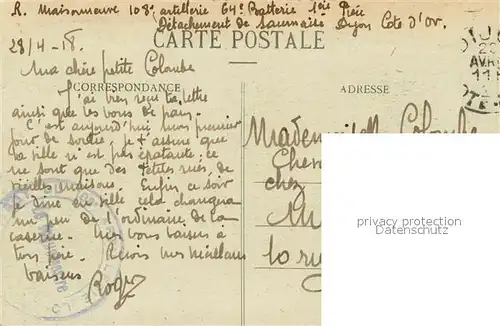 R. Maisonneuve 108e artillerie 64e Batterie 1ère Pièce
Détachement de
Dijon Cote d'Or.
28/4-18.
CARTE POSTALE
Ma chère petite Colombe
CORRESPONDANCE
ADRESSE
J'ai bien reçu ta lettre
ainsi que les bons de pain.
C'est aujourd'hui mon premier
jour de sortie. Je t assure que
la ville n'est pas épatante; ce
ne sont que des petites rues, de
vieilles maisons. Enfin ce soir
je dine en ville cela changera
un peu de l'ordinaire de la
caserne.
Reçois mes meilleurs
baisers
Roger
Mademoiselle Colombe
chez
privacy protection